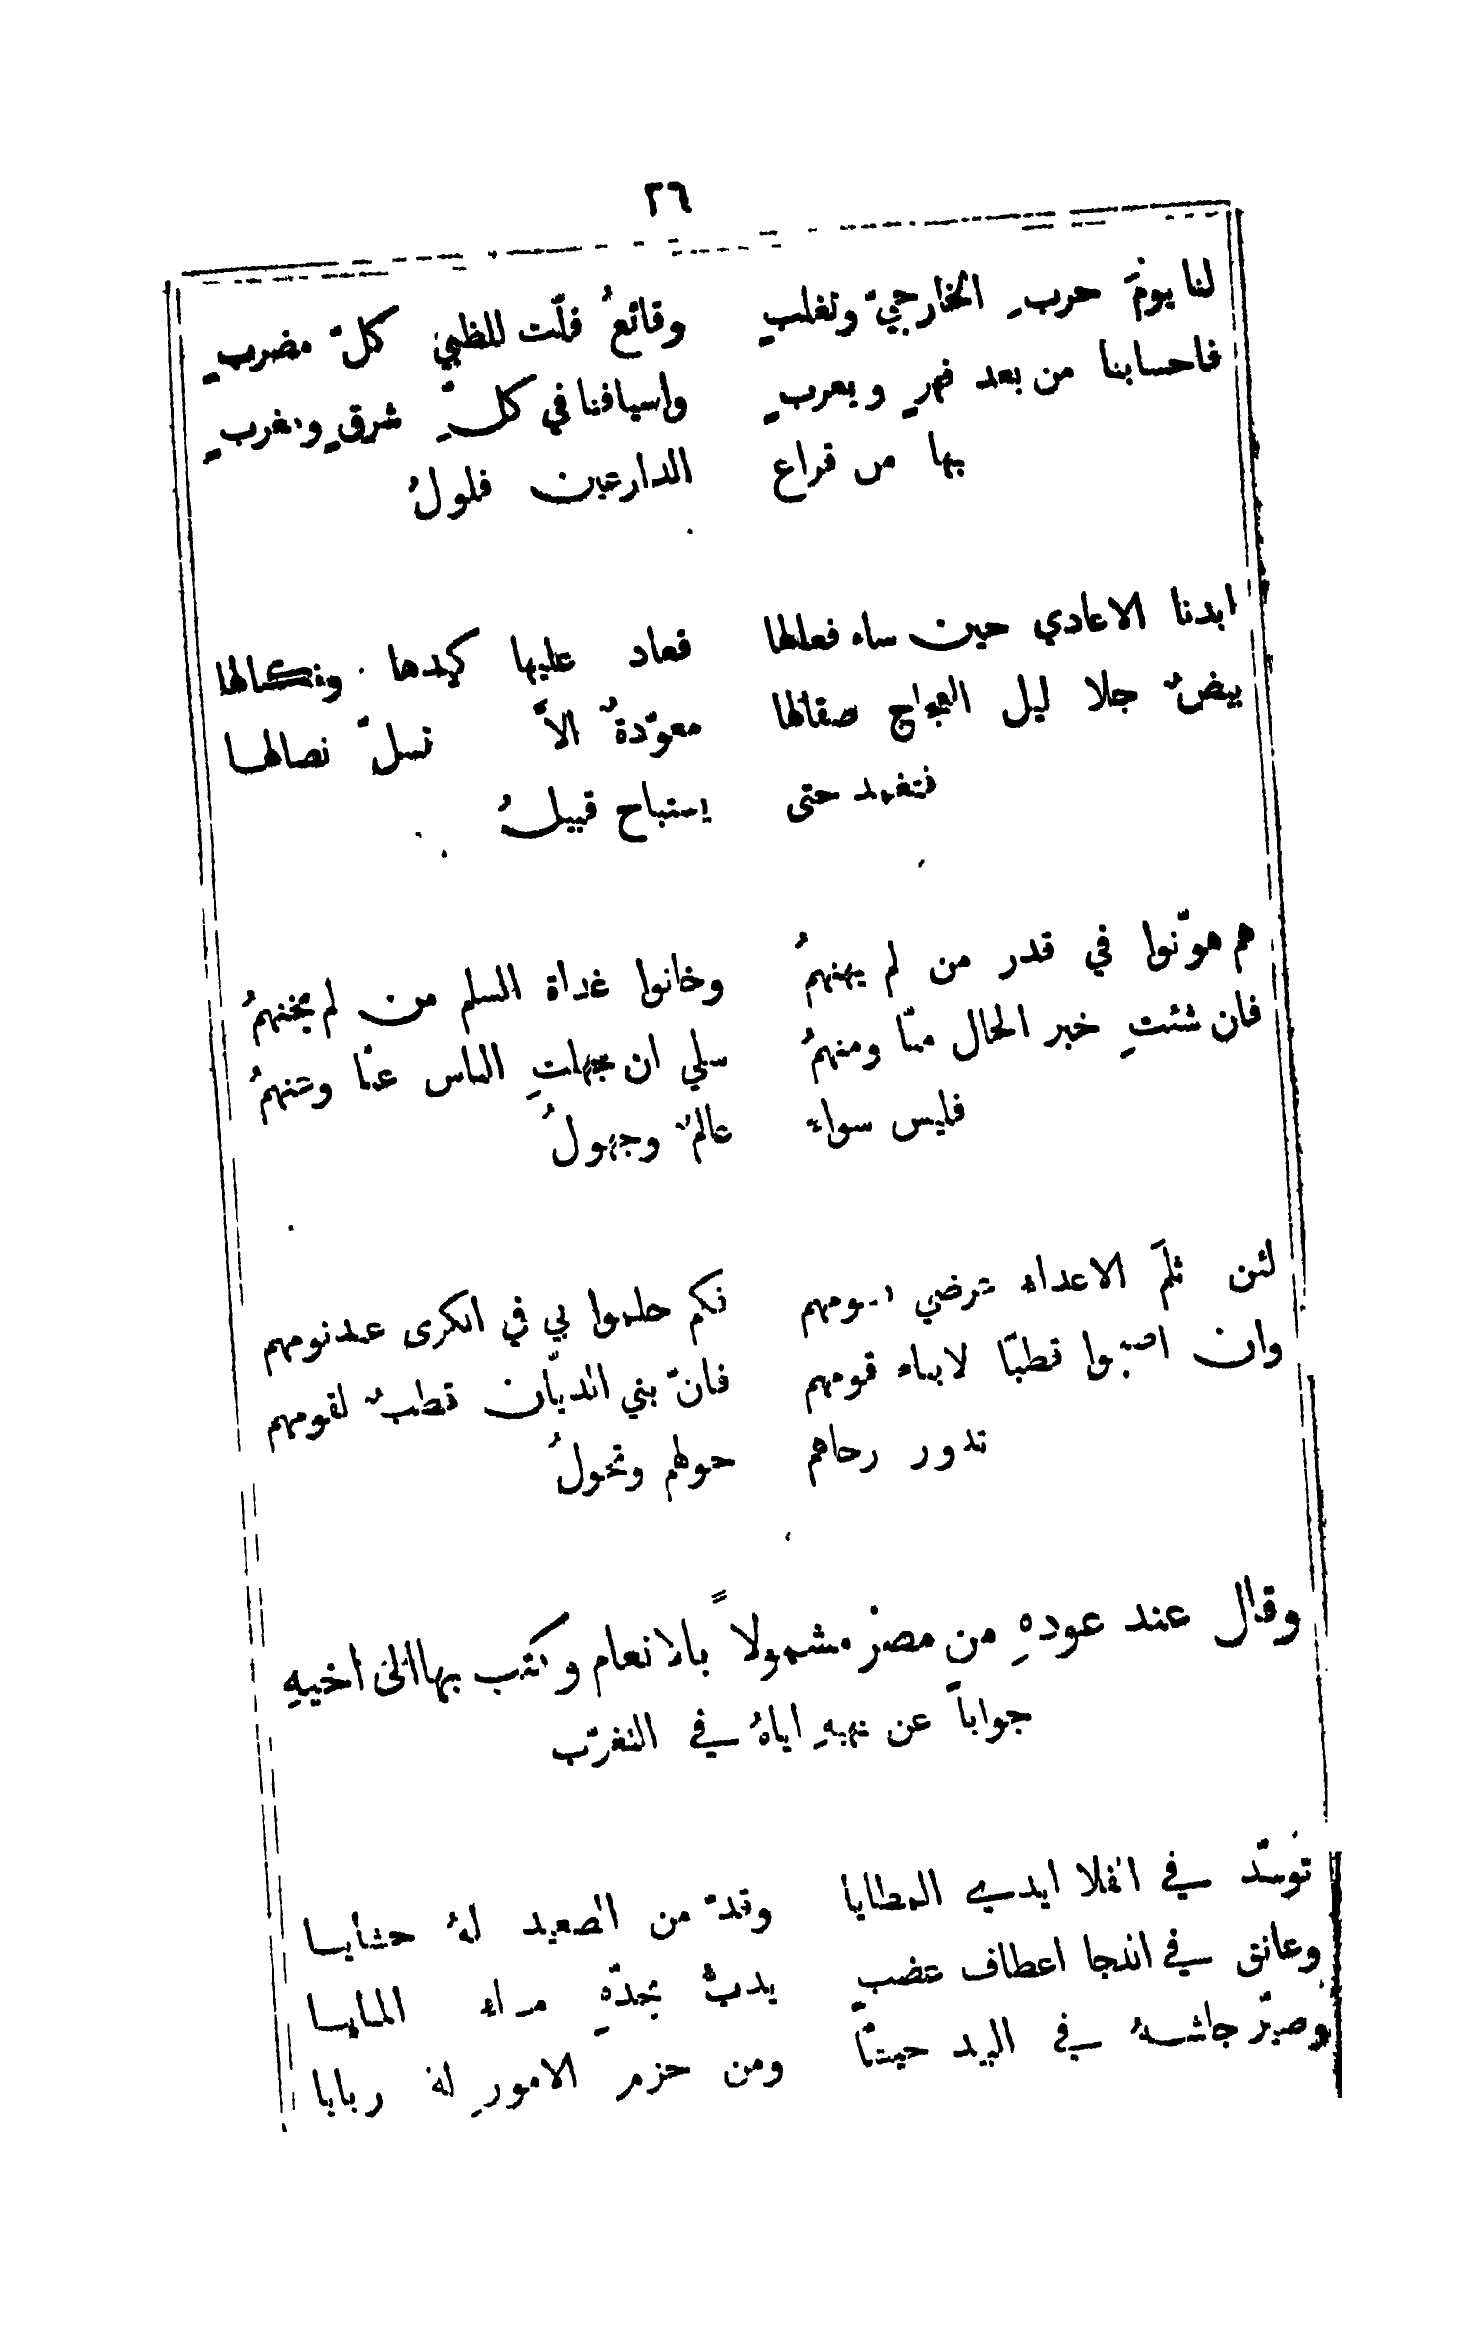 ٢٦
لنا يومَ حربِ الخارجيّ وتغلبٍ وقائعُ فلّت للظبى كلّ مضربٍ
فاحسابنا من بعد فهرٍ ويعربٍ واسيافنا في كلّ شرقٍ ومغربٍ
بها من قراع الدارعين فلولُ
ابدنا الاعادي حين ساء فعالها فعاد عليها كيدها ونكالها
بيضٌ جلا ليل العجاج صقالها معوّدةٌ الاَّ تسلّ نصالها
فتغمد حتى يستباح قبيلُ
هم هوّنوا في قدر من لم يهنهمُ وخانوا غداة السلم من لم يخنهمُ
فان شئتِ خبر الحال منّا ومنهمُ سلي ان جهلتِ الناس عنّا وعنهمُ
فليس سواء عالمٌ وجهولُ
لئن ثلَّم الاعداء عرضي بلومهم فكم حلموا بي في الكرى عند نومهم
وان اصبحوا قطبًا لابناء قومهم فانّ بني الديّان قطبٌ لقومهم
تدور رحاهم حولهم وتحولُ
وقال عند عودهِ من مصر مشمولاً بالانعام وكتب بها الى اخيهِ
جواباً عن نهيهِ اياهُ في التغرّب
توسّد في الفلا ايدي المطايا وقدّ من الصعيد لهُ حشايا
وعانق في الدجا اعطاف عضبٍ يدبُّ بحدّهِ ماء المنايا
وصيّر جاشهُ في البيد جيشًا ومن حزم الامورِ لهُ ربايا